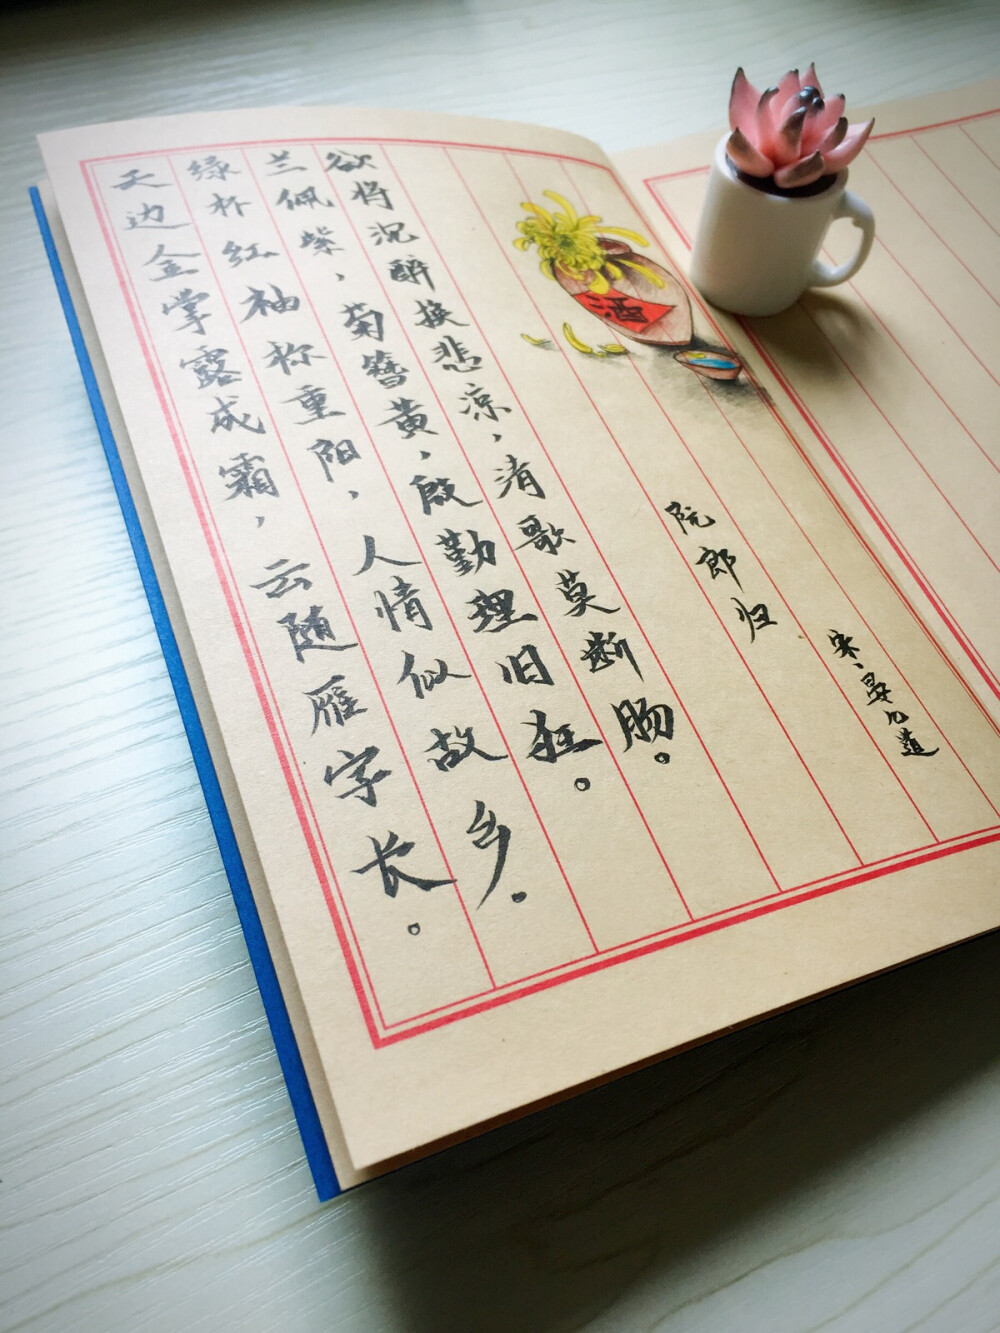 天边金掌露成霜，云随雁字长。
绿杯红袖称重阳，人情似故乡。
兰佩紫，菊簪黄，殷勤理旧狂。
欲将沉醉换悲凉，清歌莫断肠。
酒
阮郎归
宋、晏几道